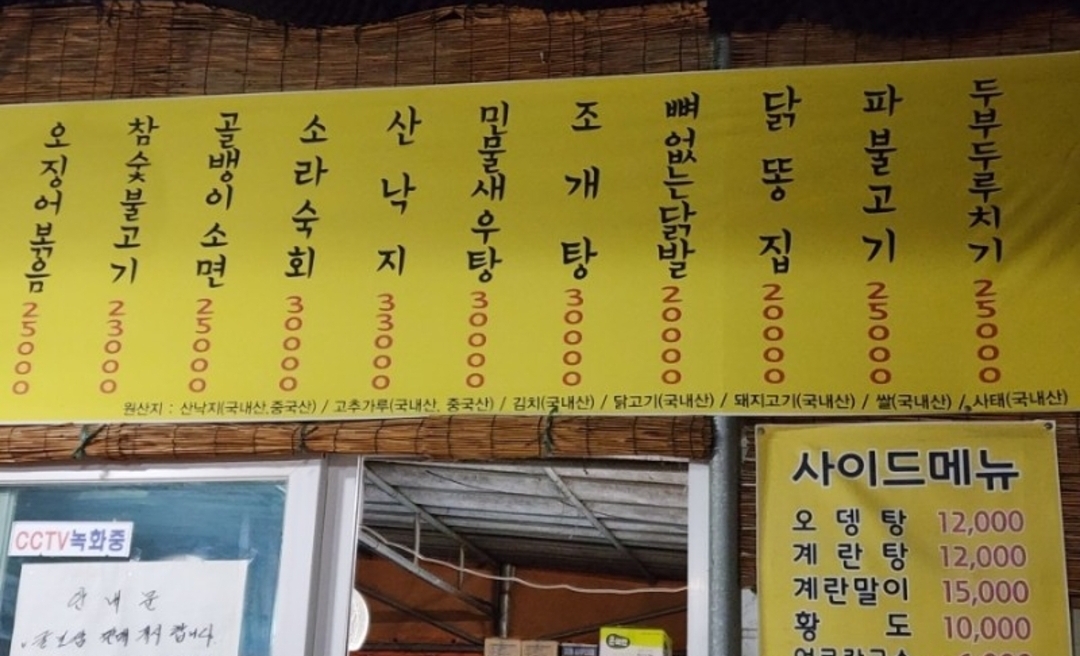 오징어볶음 25000
참숯불고기 23000
골뱅이소면 25000
소라숙회 30000
산낙지 33000
민물새우탕 30000
조개탕 30000
뼈없는닭발 20000
닭똥집 20000
파불고기 25000
두부두루치기 25000
원산지 : 산낙지(국내산,중국산) / 고추가루(국내산, 중국산) / 김치(국내산) / 닭고기(국내산) / 돼지고기(국내산) / 쌀(국내산) / 사태(국내산)
사이드메뉴
오뎅탕 12,000
계란탕 12,000
계란말이 15,000
황도 10,000
CCTV녹화중
안내문